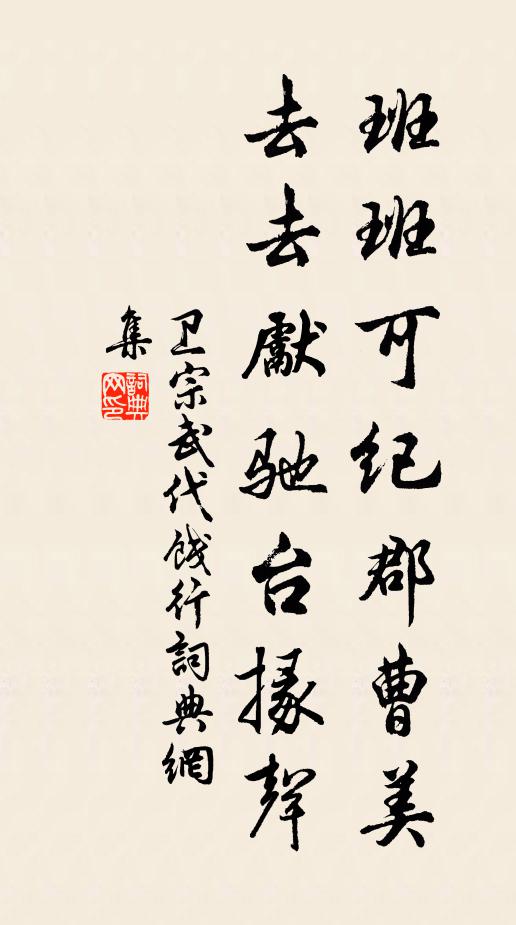 班班可纪郡曹美
去去獻驰台掾聲
卫宗武代饯行詞典網
集
詞典
网印